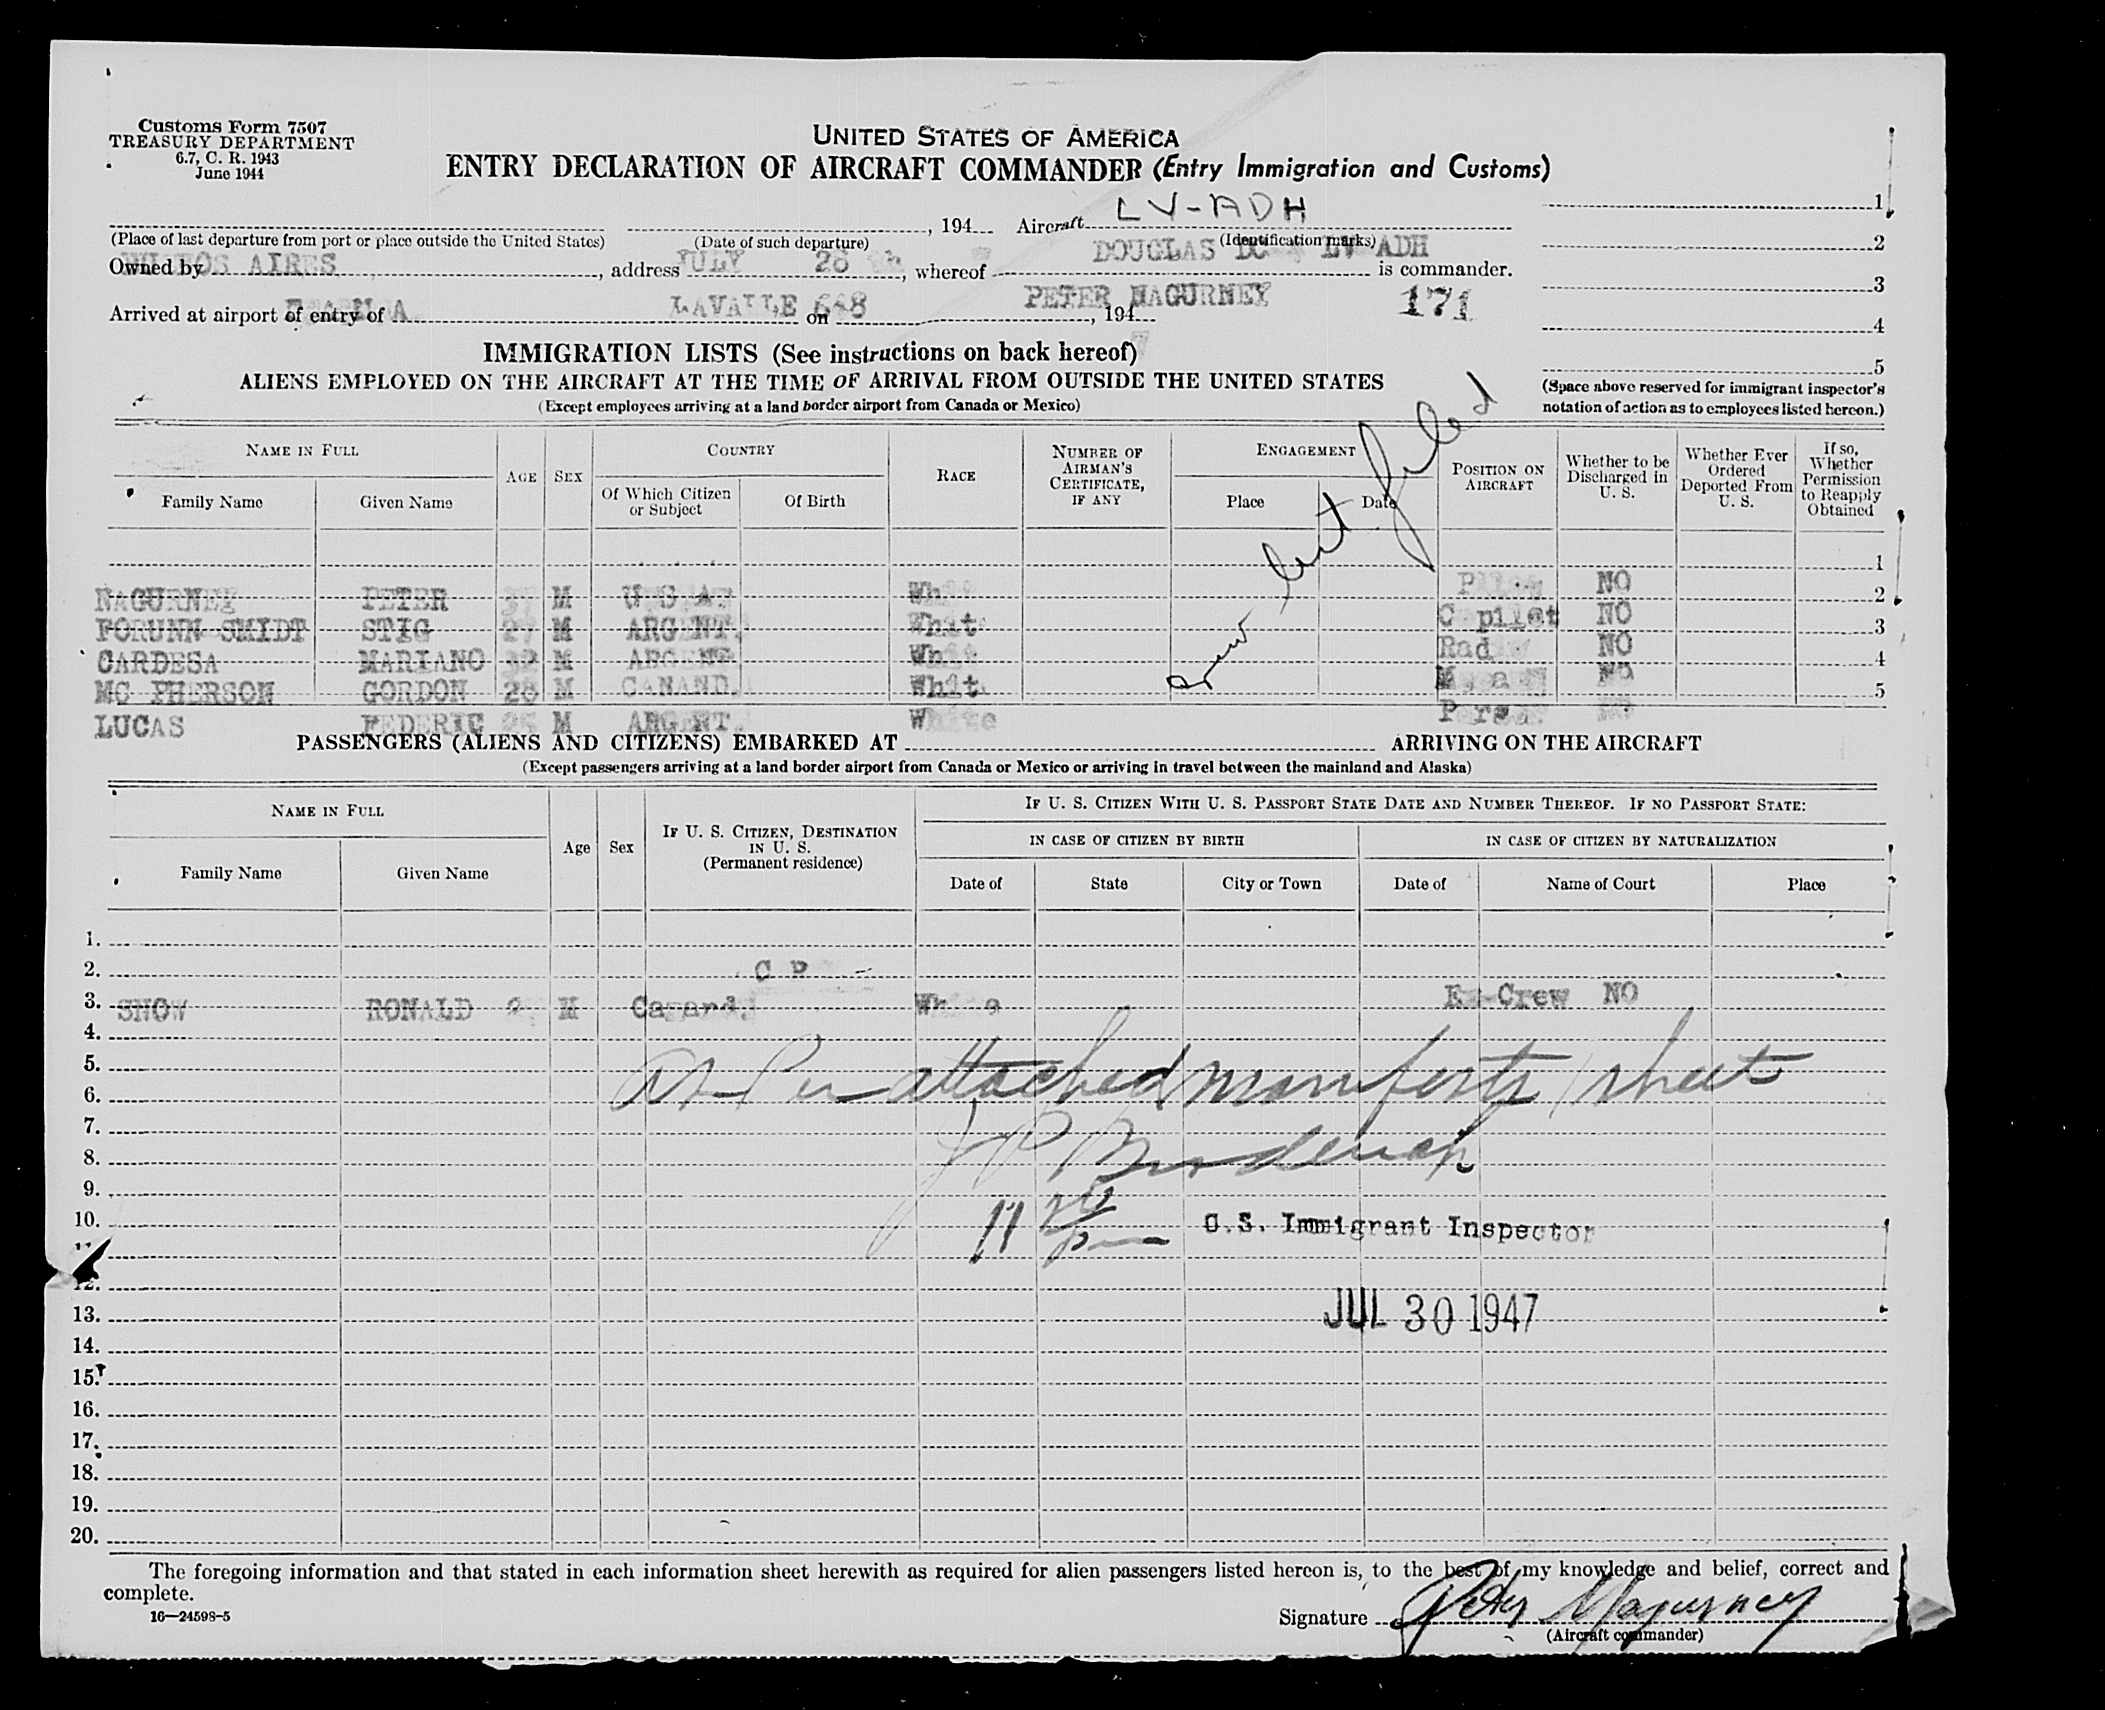 Customs Form 7507
TREASURY DEPARTMENT
6.7, C. R. 1943
June 1944
UNITED STATES OF AMERICA
ENTRY DECLARATION OF AIRCRAFT COMMANDER (Entry Immigration and Customs)
LV-ADH
, 194 Aircraft
(Place of last departure from port or place outside the United States) (Date of such departure) (Identification marks)
AIRES JULY 26 DOUGLAS DC LV ADH
Owned by , address , whereof is commander.
LAVALLE 648 PETER NAGURNEY 171
Arrived at airport of entry of on , 194
1
2
3
4
5
(Space above reserved for immigrant inspector's
notation of action as to employees listed hereon.)
IMMIGRATION LISTS (See instructions on back hereof)
ALIENS EMPLOYED ON THE AIRCRAFT AT THE TIME OF ARRIVAL FROM OUTSIDE THE UNITED STATES
(Except employees arriving at a land border airport from Canada or Mexico)
NAME IN FULL AGE SEX COUNTRY RACE NUMBER OF AIRMAN'S CERTIFICATE, IF ANY ENGAGEMENT POSITION ON AIRCRAFT Whether to be Discharged in U. S. Whether Ever Ordered Deported From U. S. If so, Whether Permission to Reapply Obtained
Family Name Given Name Of Which Citizen or Subject Of Birth Place Date
Crew list filed
1
2
3
4
5
NAGURNEY PETER M U S A NO
FORUNN SMIDT STIG 27 M ARGENT. Whit C pilot NO
CARDESA MARIANO M ARGENT. Whit Rad NO
MC PHERSON GORDON 28 M CANAND. Whit NO
LUCAS FEDERIC M ARGENT. White
PASSENGERS (ALIENS AND CITIZENS) EMBARKED AT ARRIVING ON THE AIRCRAFT
(Except passengers arriving at a land border airport from Canada or Mexico or arriving in travel between the mainland and Alaska)
NAME IN FULL Age Sex IF U. S. CITIZEN, DESTINATION IN U. S. (Permanent residence) IF U. S. CITIZEN WITH U. S. PASSPORT STATE DATE AND NUMBER THEREOF. IF NO PASSPORT STATE:
IN CASE OF CITIZEN BY BIRTH IN CASE OF CITIZEN BY NATURALIZATION
Family Name Given Name Date of State City or Town Date of Name of Court Place
1.
2. C P
3. SNOW RONALD M Canard. Crew NO
4.
5.
6. As Per attached manifests / sheet
7.
8.
9.
10. U.S. Immigrant Inspector
11
12.
13. JUL 30 1947
14.
15.
16.
17.
18.
19.
20.
The foregoing information and that stated in each information sheet herewith as required for alien passengers listed hereon is, to the best of my knowledge and belief, correct and
complete.
16—24598-5
Signature Peter Nagurney
(Aircraft commander)